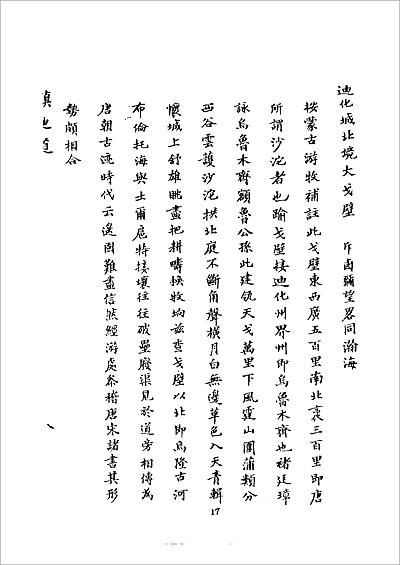 迪化城北境大戈壁　斥鹵彌望畧同瀚海
按蒙古游牧補註此戈壁東西廣五百里南北袤三百里即唐
所謂沙沱者也踰戈壁接迪化州界州即烏魯木齊也褚廷璋
詠烏魯木齊額魯公孫此建瓴天戈萬里下風霆山圍蒲類分
西谷雲護沙沱拱北庭不斷角聲橫月白無邊草色入天青輯
懷城上舒雄眺盡把耕疇換牧坰茲查戈壁以北即烏隆古河
布倫托海與土爾扈特接壤往往破壘廢渠見於道旁相傳為
唐朝古迹時代云遙固難盡信然經游處參稽唐宋諸書其形
勢頗相合
17